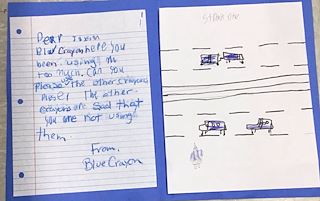 Dear
Blue Crayon here you
been using me
too much. Can you
please use the other crayons
The other
crayons are sad that
you are not using
them.
From,
Blue Crayon